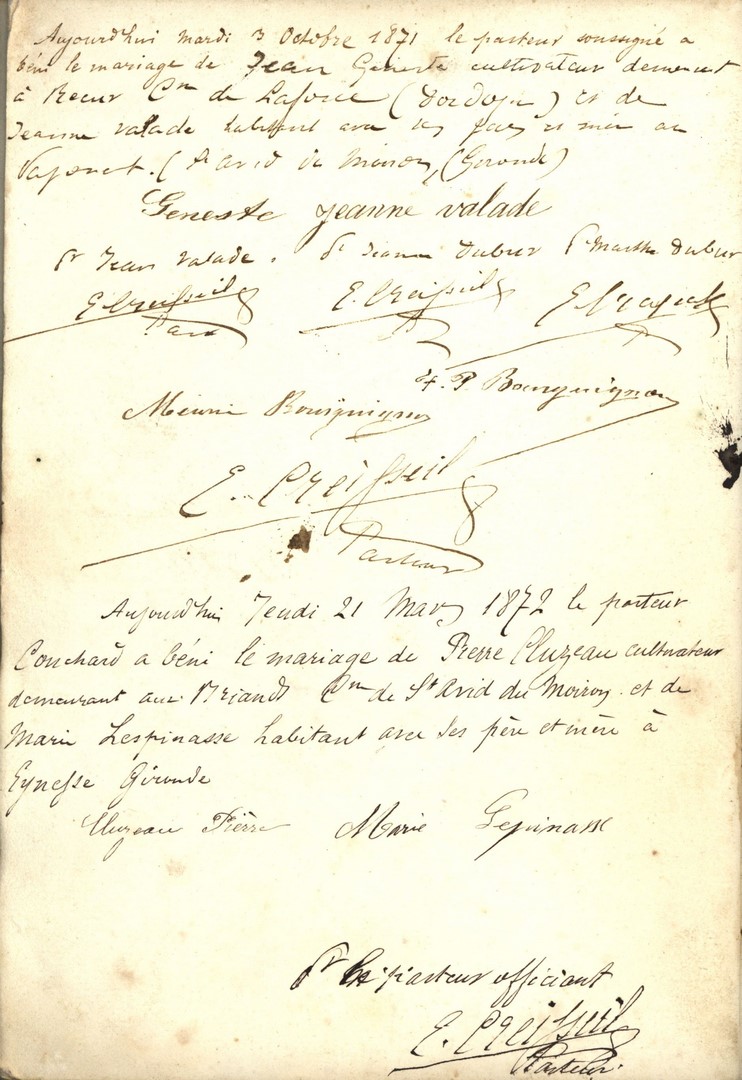 Aujourd'hui mardi 3 Octobre 1871 le pasteur soussigné a
béni le mariage de Jean Geneste cultivateur demeurant
à Cne de Laforce (Dordogne) et de
Jeanne valade habitant avec ses père et mère au
(St Avid du Moiron, (Gironde)
Geneste jeanne valade
Pr Jean valade. Pr Jeanne Dubur Pr Marthe Dubur
E. Creisseil E. Creisseil E. Creisseil
Past
F. P. Bourguignon
Bourguignon
E. Creisseil
Pasteur
Aujourd'hui Jeudi 21 Mars 1872 le pasteur
Couchard a béni le mariage de Pierre Cluzeau cultivateur
demeurant aux Briands Cne de St Avid du Moiron et de
Marie Lespinasse habitant avec ses père et mère à
Eynesse Gironde
Cluzeau Pièrre Marie Lepinasse
Pr le pasteur officiant
E. Creisseil
Pasteur.